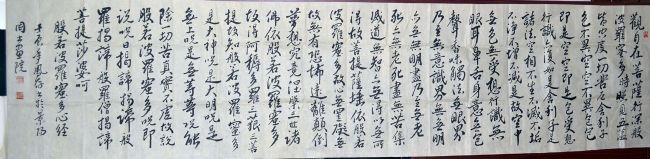 觀自在菩薩行深般若
波羅蜜多時照見五蘊
皆空度一切苦厄舍利子
色不異空空不異色色
即是空空即是色受想
行識亦復如是舍利子是
諸法空相不生不滅不垢
不淨不增不減是故空中
無色無受想行識無
眼耳鼻舌身意無色
聲香味觸法無眼界
乃至無意識界無無明
亦無無明盡乃至無老
死亦無老死盡無苦集
滅道無智亦無得以無所
得故菩提薩埵依般若
波羅蜜多故心無罣礙
故無有恐怖遠離顛倒
夢想究竟涅槃三世諸
佛依般若波羅蜜多
故得阿耨多羅三藐三菩
提故知般若波羅蜜多
是大神咒是大明咒是
無上咒是無等等咒能
除一切苦真實不虛故說
般若波羅蜜多咒即
說咒曰揭諦揭諦般
羅揭諦般羅僧揭諦
菩提莎婆呵
般若波羅蜜多心經
壬辰年